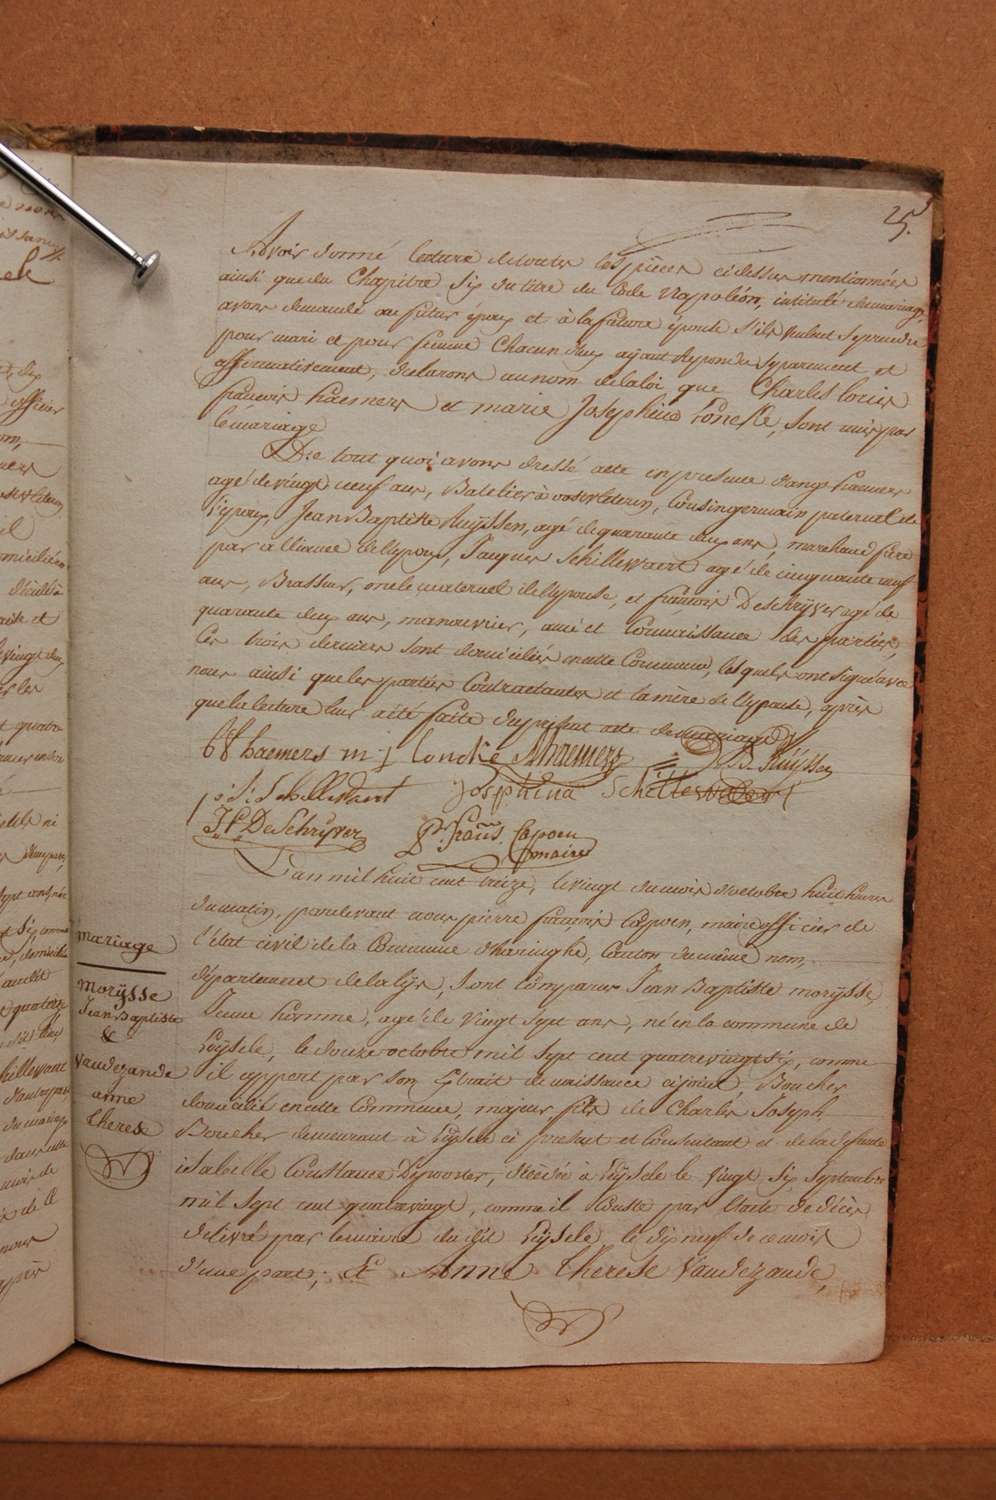 25.
Avoir donné lecture de toutes les pièces ci dessus mentionnées
ainsi que du Chapitre Six du titre du Code Napoléon, intitulé du mariage,
avons demandé au futur époux et à la future épouse s'ils veulent se prendre
pour mari et pour femme Chacun d'eux ayant repondu separement et
affirmativement, declarons au nom de la loi que Charles Louis
francois haemers et marie Josephine Loncke, sont unis par
le mariage
De tout quoi avons dressé acte en presence d'ange haemers
agé de vingt neuf ans, Batelier à oostvleteren, Cousin germain paternel de
l'epoux, Jean Baptiste Ruÿssen, agé de quarante deux ans, marchand frere
par alliance de l'epoux, Jacques Schillewaert agé de cinquante neuf
ans, Brasseur, oncle maternel de l'epouse, et francois Deschrÿver agé de
quarante deux ans, manouvrier, ami et Connaissance des parties,
les trois derniers sont domiciliés en cette Commune, lesquels ont signé avec
nous ainsi que les parties Contractantes et la mère de l'epouse, après
que la lecture leur a été faite du present acte de mariage
haemers m j Loncke Ahaemers J B Ruÿssen
p: J: Schillewaert Josephina Schillewaert
J F DeSchrÿver Pr. Frañs. Capoen
maire
L'an mil huit cent treize, le vingt du mois d'octobre huit heures
du matin, pardevant nous pierre françois Capoen, maire officier de
l'état civil de la Commune d'haringhe, Canton du même nom,
département de la lÿs, sont Comparus Jean Baptiste morÿsse
Jeune homme, agé de Vingt Sept ans, né en la commune de
Eÿsele, le douze octobre mil sept cent quatrevingt six, comme
il appert par son Extrait de naissance cijoint Boucher
domicilié en cette Commune, majeur fils de Charles Joseph
Boucher demeurant à Eÿsele ci present et Consentant et de la defunte
isabelle Constance Dewoorter, decedée à Eÿsele le Vingt Six Septembre
mil Sept cent quatrevingt, comme il Conste par l'acte de décès
delivré par le maire du dit Eÿsele, le dix neuf de ce mois
d'une part; Et Anne Therese Vandezande,
mariage
morÿsse
Jean Baptiste
&
Vandezande
anne
therese